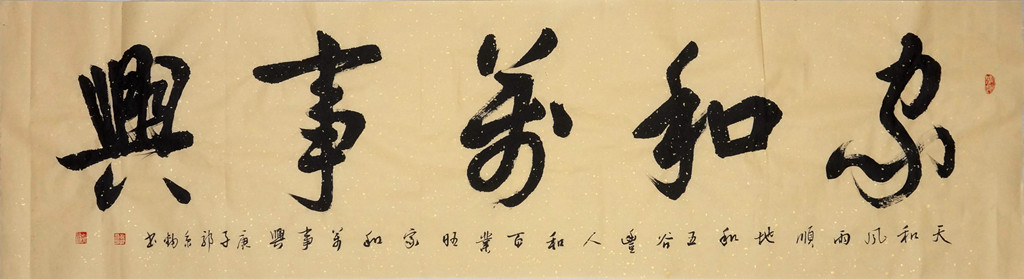 家和萬事興
天和風雨順地和五谷豐人和百業旺家和萬事興庚子郭
書